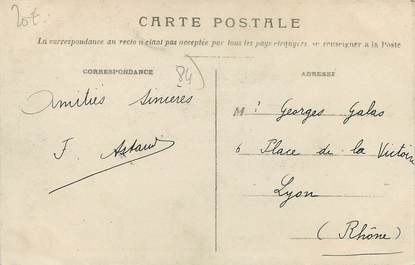 20€
CARTE POSTALE
La correspondance au recto n'étant pas acceptée par tous les pays étrangers, se renseigner à la Poste
CORRESPONDANCE
84
Amitiés sincères
F.
ADRESSE
M Georges Galas
6 Place de la Victoire
Lyon
(Rhône)